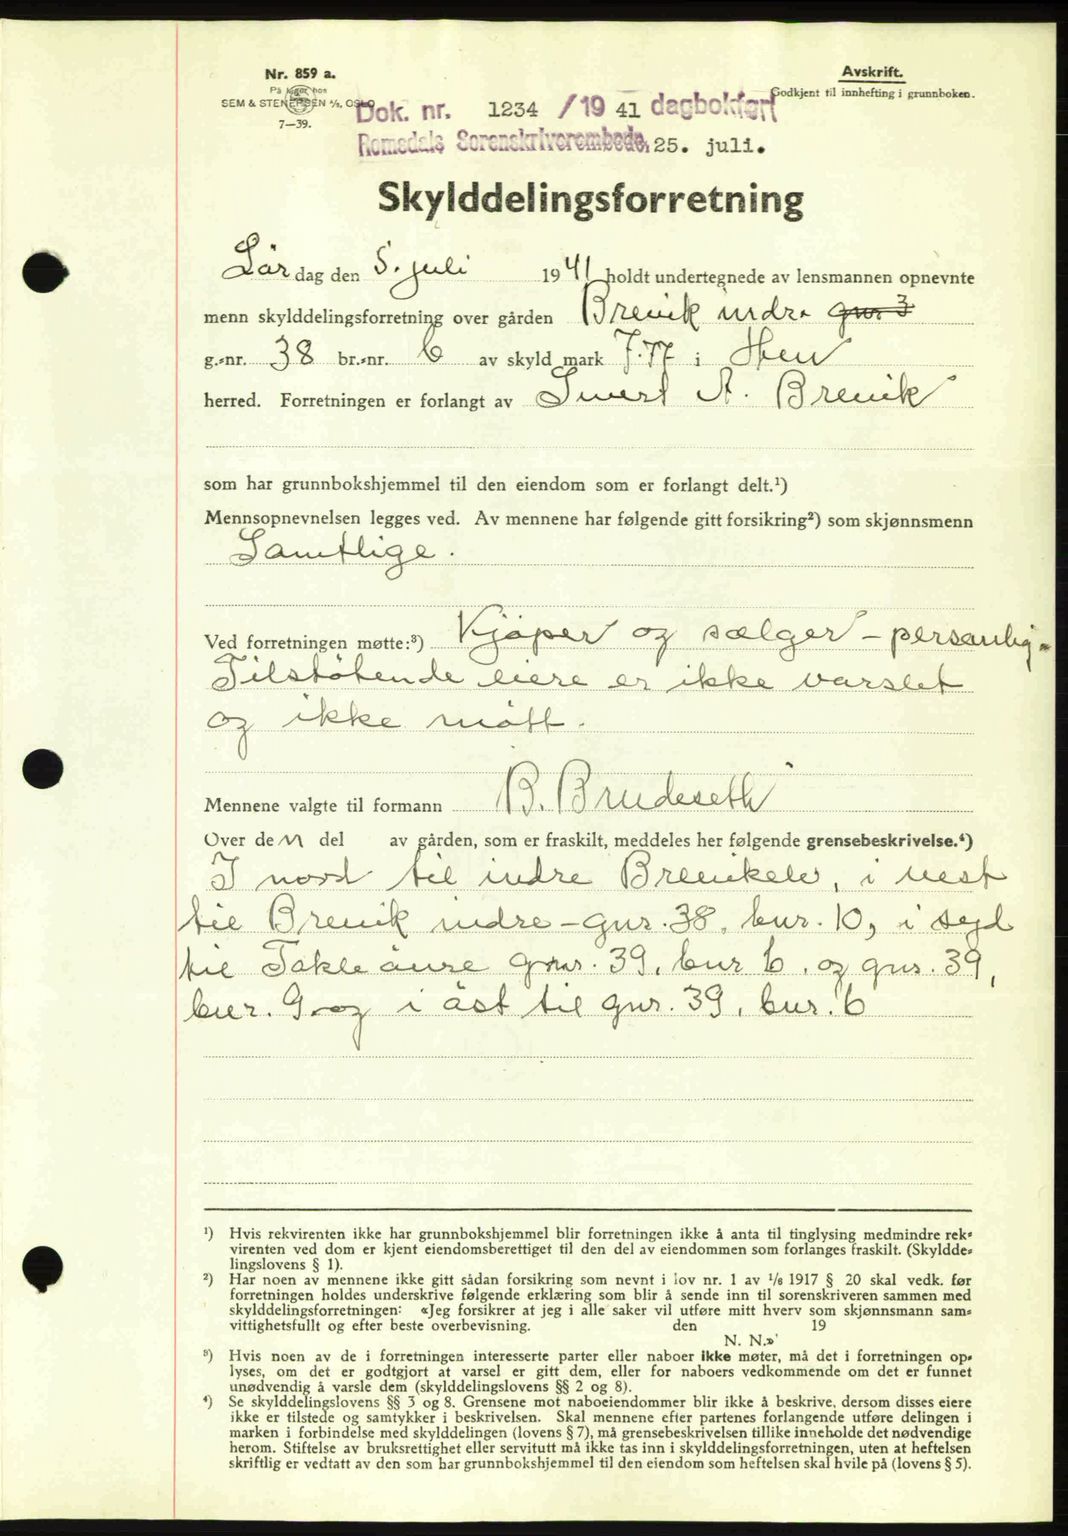 Nr. 859 a.
På lager hos
SEM & STENERSEN A/S, OSLO
7—39.
Avskrift.
Godkjent til innhefting i grunnboken.
Dok. nr. 1234 /19 41 dagbokført
Romsdals Sorenskriverembede, 25. juli.
Skylddelingsforretning
Lördag den 5. juli 1941 holdt undertegnede av lensmannen opnevnte
menn skylddelingsforretning over gården Brevik indre gnr 3
g.-nr. 38 br.-nr. 6 av skyld mark 7.77 i Hen
herred. Forretningen er forlangt av Sivert A. Brevik
som har grunnbokshjemmel til den eiendom som er forlangt delt.¹)
Mennsopnevnelsen legges ved. Av mennene har følgende gitt forsikring²) som skjønnsmenn
Samtlige.
Ved forretningen møtte:³) Kjöper og sælger – personlig.
Tilstötende eiere er ikke varslet
og ikke mött.
Mennene valgte til formann B. Brudeseth
Over den del av gården, som er fraskilt, meddeles her følgende grensebeskrivelse.⁴)
I nord til indre Brevikelv, i vest
til Brevik indre – gnr. 38, bnr. 10, i syd
til gnr. 39, bnr 6, og gnr. 39,
bnr. 9 og i öst til gnr. 39, bnr. 6
¹) Hvis rekvirenten ikke har grunnbokshjemmel blir forretningen ikke å anta til tinglysing medmindre rek-
virenten ved dom er kjent eiendomsberettiget til den del av eiendommen som forlanges fraskilt. (Skyldde-
lingslovens § 1).
²) Har noen av mennene ikke gitt sådan forsikring som nevnt i lov nr. 1 av 1/6 1917 § 20 skal vedk. før
forretningen holdes underskrive følgende erklæring som blir å sende inn til sorenskriveren sammen med
skylddelingsforretningen: «Jeg forsikrer at jeg i alle saker vil utføre mitt hverv som skjønnsmann sam-
vittighetsfullt og efter beste overbevisning. den 19
N. N.»
³) Hvis noen av de i forretningen interesserte parter eller naboer ikke møter, må det i forretningen op-
lyses, om det er godtgjort at varsel er gitt dem, eller for naboers vedkommende om det er funnet
unødvendig å varsle dem (skylddelingslovens §§ 2 og 8).
⁴) Se skylddelingslovens §§ 3 og 8. Grensene mot naboeiendommer blir ikke å beskrive, dersom disses eiere
ikke er tilstede og samtykker i beskrivelsen. Skal mennene efter partenes forlangende utføre delingen i
marken i forbindelse med skylddelingen (lovens § 7), må grensebeskrivelsen tillike inneholde det nødvendige
herom. Stiftelse av bruksrettighet eller servitutt må ikke tas inn i skylddelingsforretningen, uten at heftelsen
skriftlig er vedtatt av den som har grunnbokshjemmel til den eiendom som heftelsen skal hvile på (lovens § 5).